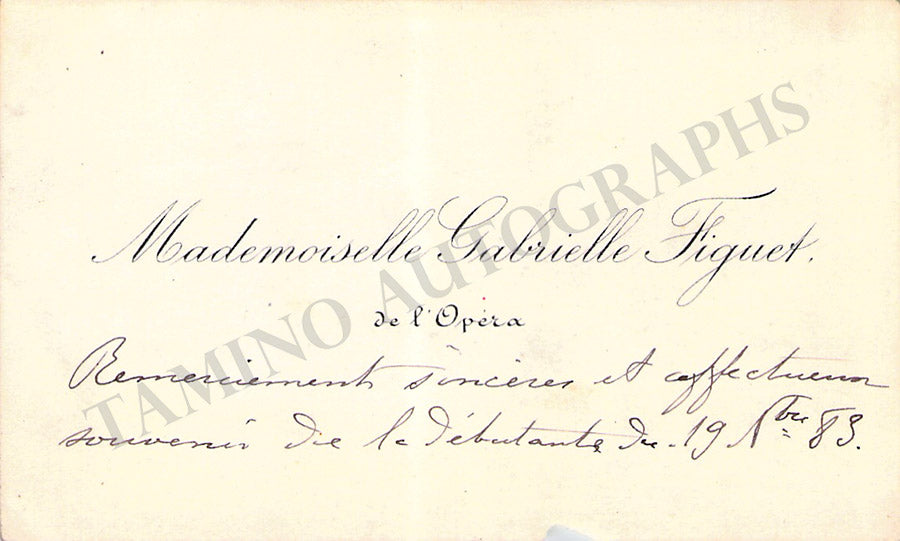 Mademoiselle Gabrielle Figuet.
de l'Opéra
Remerciements sincères et affectueux
souvenir de la débutante du 19 Nbre 83.
TAMINO AUTOGRAPHS